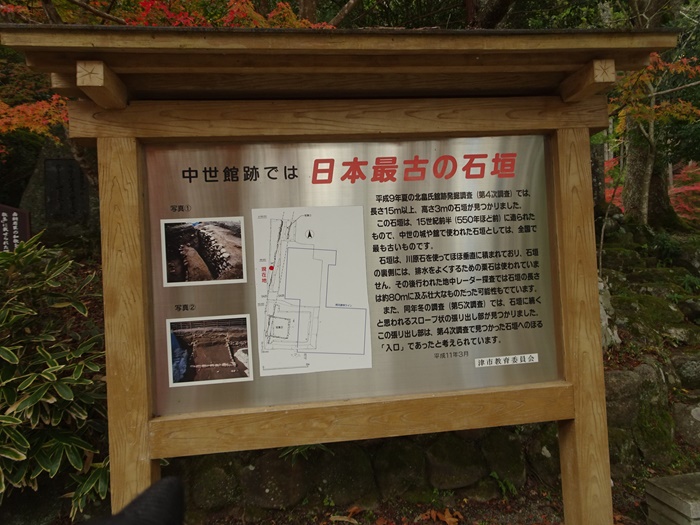 中世館跡では 日本最古の石垣
平成9年夏の北畠氏館跡発掘調査（第4次調査）では、
長さ15m以上、高さ3mの石垣が見つかりました。
この石垣は、15世紀前半（550年ほど前）に造られた
もので、中世の城や館で使われた石垣としては、全国で
最も古いものです。
石垣は、川原石を使ってほぼ垂直に積まれており、石垣
の裏側には、排水をよくするための栗石は使われていま
せん。その後行われた地中レーダー探査では石垣の長さ
は約80mに及ぶ壮大なものだった可能性もでています。
また、同年冬の調査（第5次調査）では、石垣に続く
と思われるスロープ状の張り出し部が見つかりました。
この張り出し部は、第4次調査で見つかった石垣へのぼる
「入口」であったと考えられています。
平成11年3月
津市教育委員会
写真①
写真②
現在地